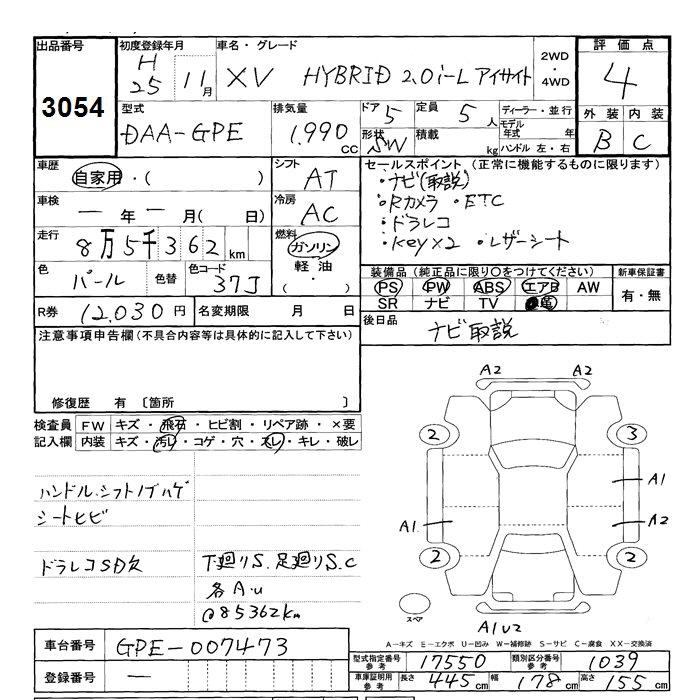 出品番号
3054
初度登録年月
H
25 11月
車名・グレード
XV HYBRID 2.0i-L アイサイト
2WD
・
4WD
評価点
4
外装 内装
B C
型式
DAA-GPE
排気量
1,990
cc
ドア 5
形状 SW
定員 5人
積載 kg
ディーラー・並行
モデル
年式 年
ハンドル 左・右
車歴
自家用・( )
シフト
AT
車検
ー 年 ー 月( 日)
冷房
AC
走行
8万5千362km
燃料
ガソリン
軽油
( ・ )
色
パール
色替
色コード
37J
セールスポイント (正常に機能するものに限ります)
・ナビ(取説)
・Rカメラ ・ETC
・ドラレコ
・Key×2 ・レザーシート
装備品 (純正品に限り○をつけてください)
PS PW ABS エアB AW
SR ナビ TV 革
新車保証書
有・無
R券 12,030円
名変期限 月 日
後日品
ナビ取説
注意事項申告欄 (不具合内容等は具体的に記入して下さい)
修復歴 有 〔箇所 〕
検査員
記入欄
FW キズ・飛石・ヒビ割・リペア跡・×要
内装 キズ・汚レ・コゲ・穴・スレ・キレ・破レ
ハンドル.シフトノブハゲ
シートヒビ
ドラレコSD欠
下廻りS.足廻りS.C
各A.U
@85362km
A2 A2
2 3
A1
A1 A2
2 2
スペア
A1U2
A-キズ E-エクボ U-凹み W-補修跡 S-サビ C-腐食 XX-交換済
車台番号 GPE-007473
登録番号 ー
型式指定番号
参考
17550
類別区分番号
参考
1039
車庫証明用
参考
長さ 445cm 幅 178cm 高さ 155cm